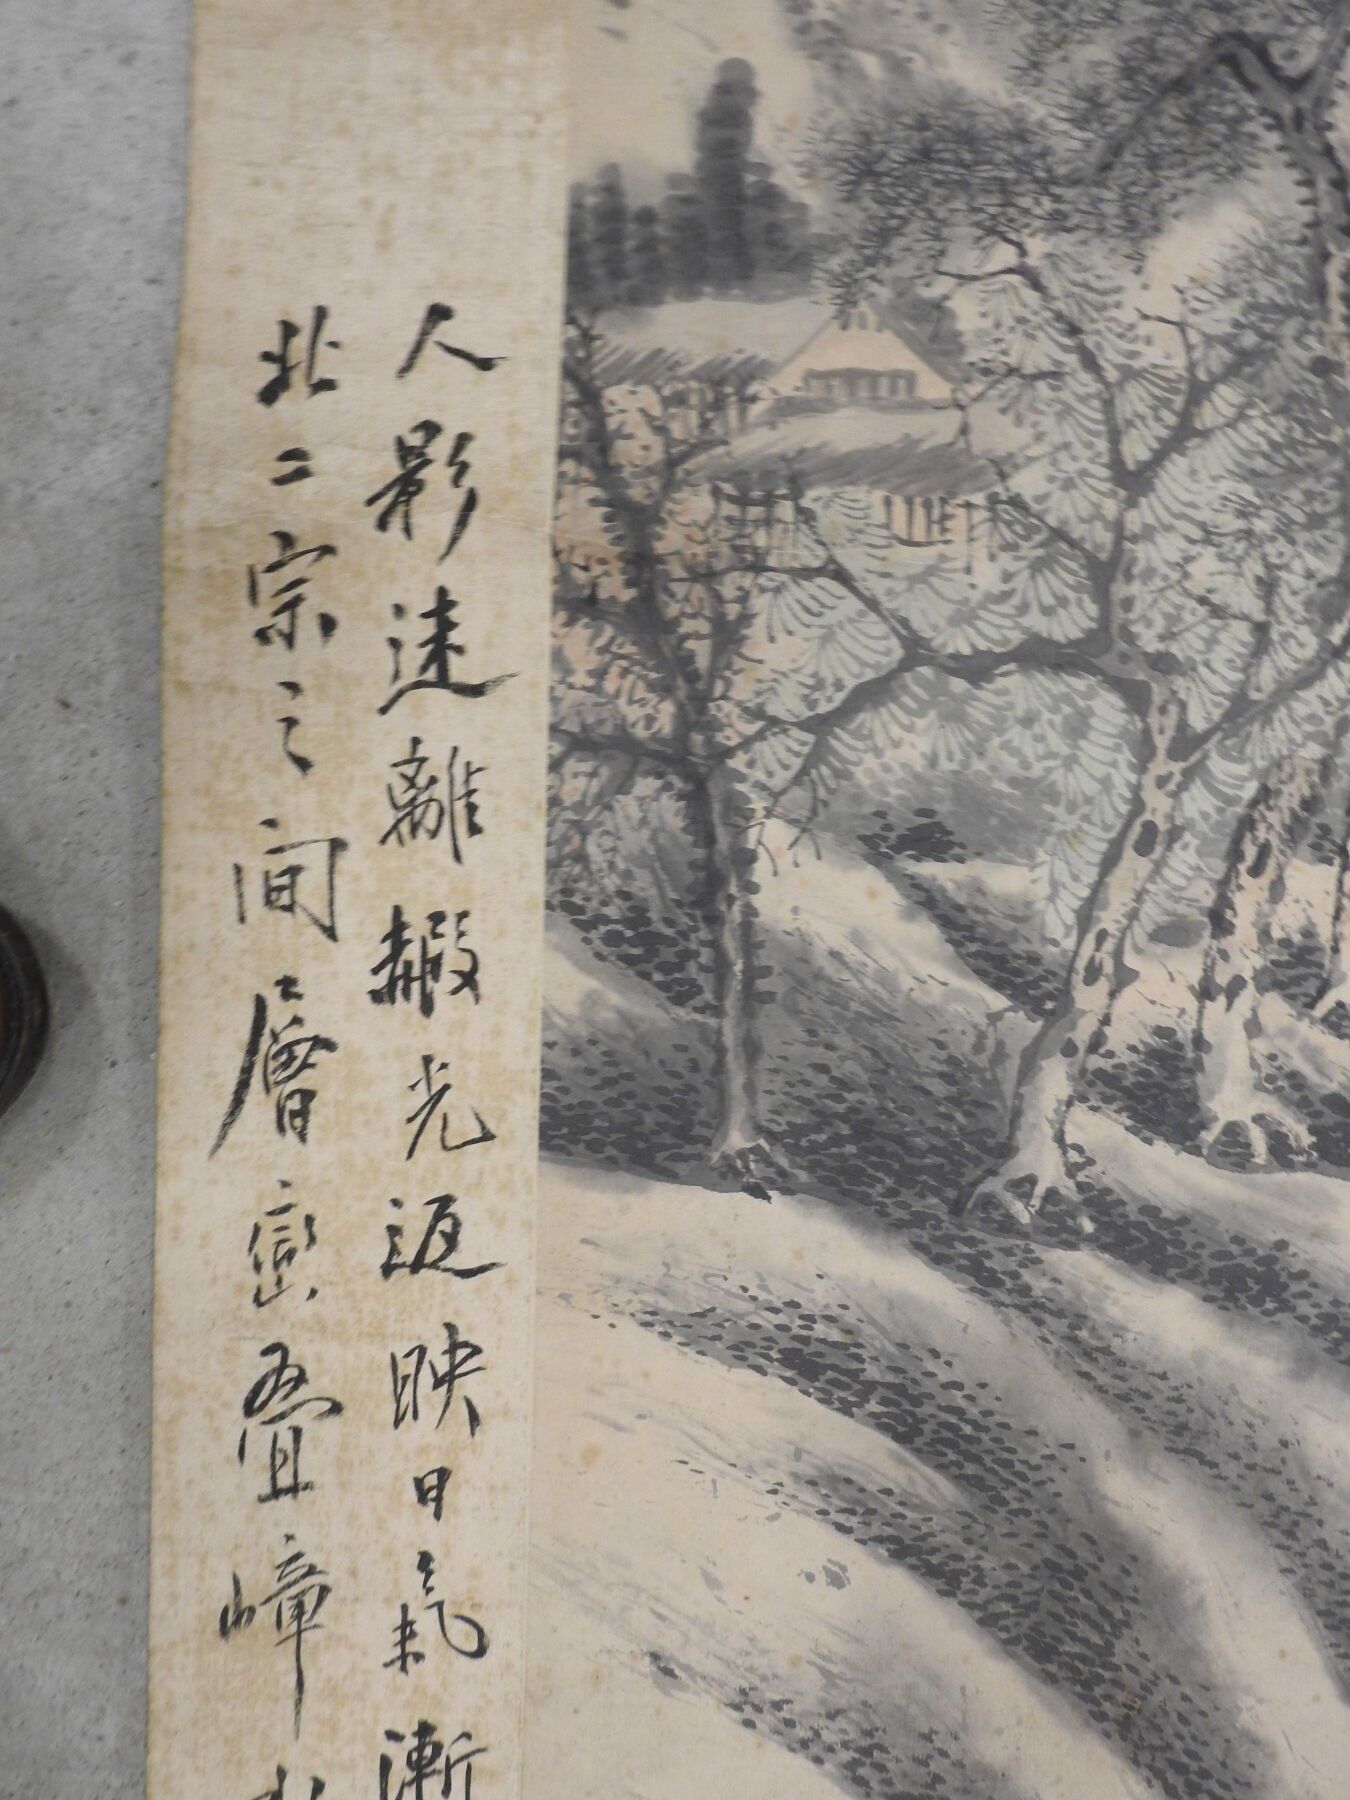 人影迷離赧光返映日氣漸
北二宗之间層巒叠嶂